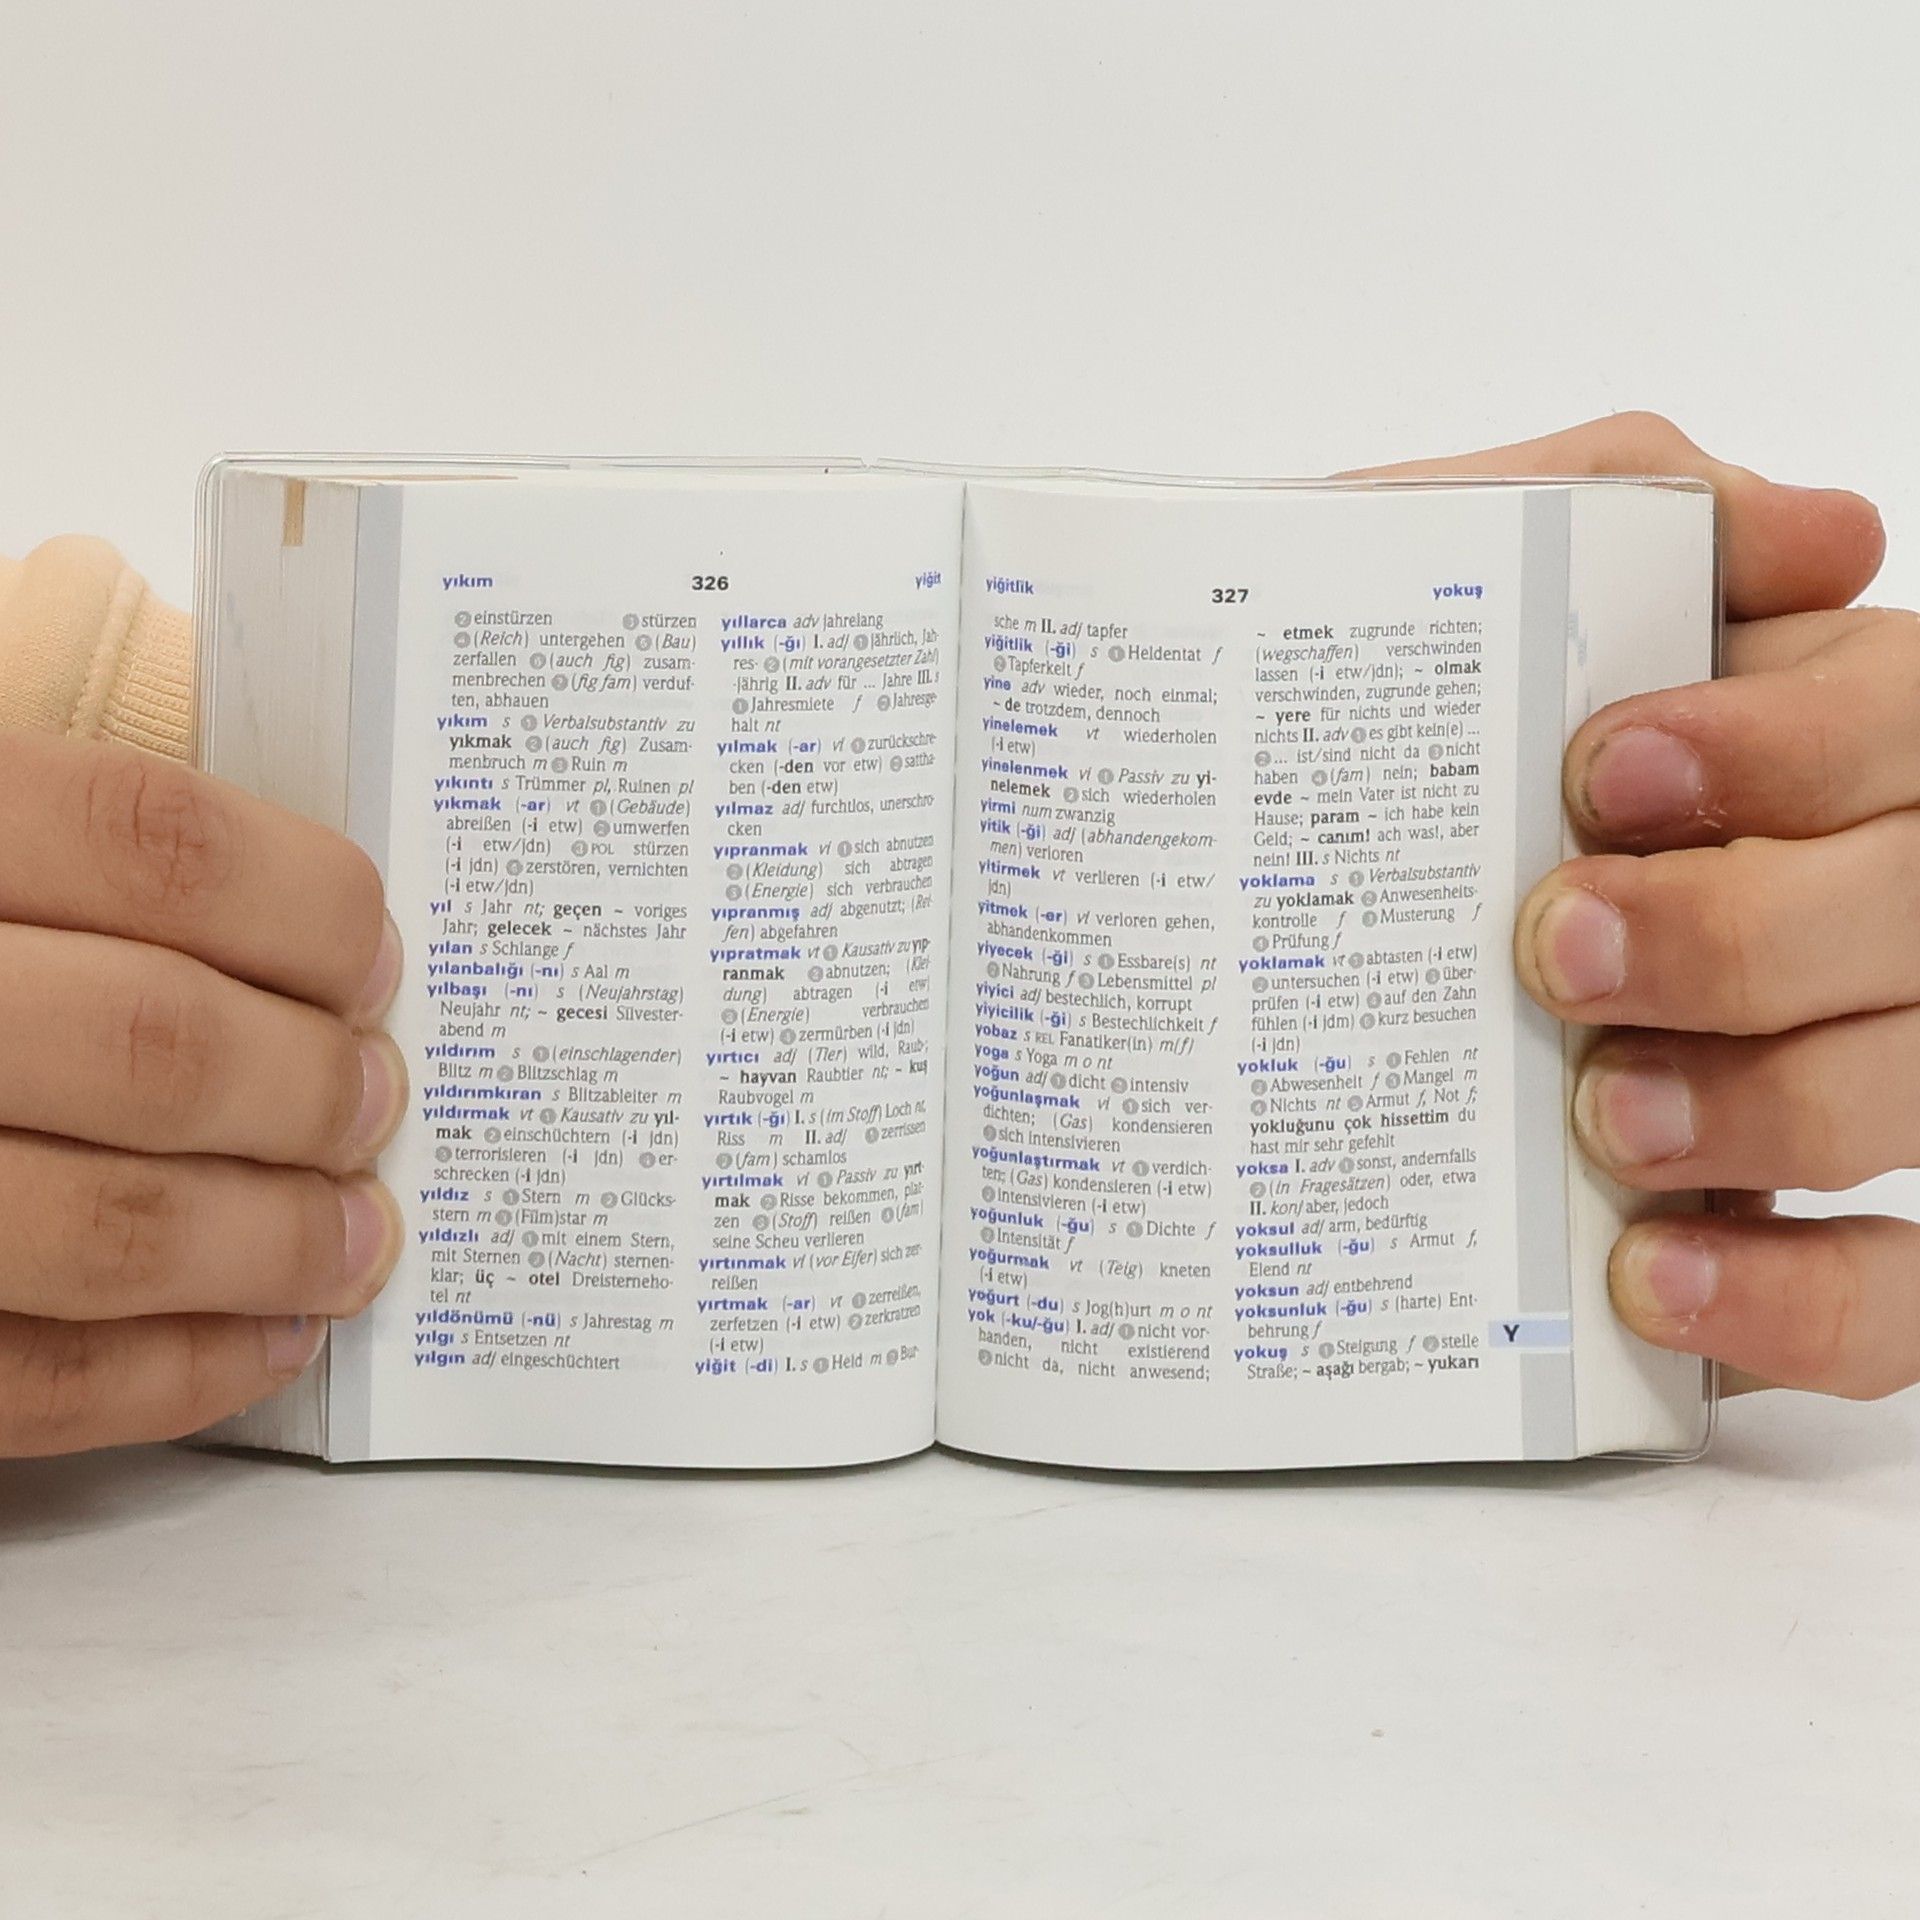 yıkım 326 yiğit
❷ einstürzen ❸ stürzen
❹ (Reich) untergehen ❺ (Bau)
zerfallen ❻ (auch fig) zusam-
menbrechen ❼ (fig fam) verduf-
ten, abhauen
yıkım s ❶ Verbalsubstantiv zu
yıkmak ❷ (auch fig) Zusam-
menbruch m ❸ Ruin m
yıkıntı s Trümmer pl, Ruinen pl
yıkmak (-ar) vt ❶ (Gebäude)
abreißen (-i etw) ❷ umwerfen
(-i etw/jdn) ❸ POL stürzen
(-i jdn) ❹ zerstören, vernichten
(-i etw/jdn)
yıl s Jahr nt; geçen ~ voriges
Jahr; gelecek ~ nächstes Jahr
yılan s Schlange f
yılanbalığı (-nı) s Aal m
yılbaşı (-nı) s (Neujahrstag)
Neujahr nt; ~ gecesi Silvester-
abend m
yıldırım s ❶ (einschlagender)
Blitz m ❷ Blitzschlag m
yıldırımkıran s Blitzableiter m
yıldırmak vt ❶ Kausativ zu yıl-
mak ❷ einschüchtern (-i jdn)
❸ terrorisieren (-i jdn) ❹ er-
schrecken (-i jdn)
yıldız s ❶ Stern m ❷ Glücks-
stern m ❸ (Film)star m
yıldızlı adj ❶ mit einem Stern,
mit Sternen ❷ (Nacht) sternen-
klar; üç ~ otel Dreisterneho-
tel nt
yıldönümü (-nü) s Jahrestag m
yılgı s Entsetzen nt
yılgın adj eingeschüchtert
yıllarca adv jahrelang
yıllık (-ğı) I. adj ❶ jährlich, Jah-
res- ❷ (mit vorangesetzter Zahl)
-jährig II. adv für ... Jahre III. s
❶ Jahresmiete f ❷ Jahresge-
halt nt
yılmak (-ar) vi ❶ zurückschre-
cken (-den vor etw) ❷ sattha-
ben (-den etw)
yılmaz adj furchtlos, unerschro-
cken
yıpranmak vi ❶ sich abnutzen
❷ (Kleidung) sich abtragen
❸ (Energie) sich verbrauchen
yıpranmış adj abgenutzt; (Rei-
fen) abgefahren
yıpratmak vt ❶ Kausativ zu yıp-
ranmak ❷ abnutzen; (Klei-
dung) abtragen (-i etw)
❸ (Energie) verbrauchen
(-i etw) ❹ zermürben (-i jdn)
yırtıcı adj (Tier) wild, Raub-;
~ hayvan Raubtier nt; ~ kuş
Raubvogel m
yırtık (-ğı) I. s (im Stoff) Loch nt,
Riss m II. adj ❶ zerrissen
❷ (fam) schamlos
yırtılmak vi ❶ Passiv zu yırt-
mak ❷ Risse bekommen, plat-
zen ❸ (Stoff) reißen ❹ (fam)
seine Scheu verlieren
yırtınmak vi (vor Eifer) sich zer-
reißen
yırtmak (-ar) vt ❶ zerreißen,
zerfetzen (-i etw) ❷ zerkratzen
(-i etw)
yiğit (-di) I. s ❶ Held m ❷ Bur-
yiğitlik 327 yokuş
sche m II. adj tapfer
yiğitlik (-ği) s ❶ Heldentat f
❷ Tapferkeit f
yine adv wieder, noch einmal;
~ de trotzdem, dennoch
yinelemek vt wiederholen
(-i etw)
yinelenmek vi ❶ Passiv zu yi-
nelemek ❷ sich wiederholen
yirmi num zwanzig
yitik (-ği) adj (abhandengekom-
men) verloren
yitirmek vt verlieren (-i etw/
jdn)
yitmek (-er) vi verloren gehen,
abhandenkommen
yiyecek (-ği) s ❶ Essbare(s) nt
❷ Nahrung f ❸ Lebensmittel pl
yiyici adj bestechlich, korrupt
yiyicilik (-ği) s Bestechlichkeit f
yobaz s REL Fanatiker(in) m(f)
yoga s Yoga m o nt
yoğun adj ❶ dicht ❷ intensiv
yoğunlaşmak vi ❶ sich ver-
dichten; (Gas) kondensieren
❷ sich intensivieren
yoğunlaştırmak vt ❶ verdich-
ten; (Gas) kondensieren (-i etw)
❷ intensivieren (-i etw)
yoğunluk (-ğu) s ❶ Dichte f
❷ Intensität f
yoğurmak vt (Teig) kneten
(-i etw)
yoğurt (-du) s Jog(h)urt m o nt
yok (-ku/-ğu) I. adj ❶ nicht vor-
handen, nicht existierend
❷ nicht da, nicht anwesend;
~ etmek zugrunde richten;
(wegschaffen) verschwinden
lassen (-i etw/jdn); ~ olmak
verschwinden, zugrunde gehen;
~ yere für nichts und wieder
nichts II. adv ❶ es gibt kein(e) ...
❷ ... ist/sind nicht da ❸ nicht
haben ❹ (fam) nein; babam
evde ~ mein Vater ist nicht zu
Hause; param ~ ich habe kein
Geld; ~ canım! ach was!, aber
nein! III. s Nichts nt
yoklama s ❶ Verbalsubstantiv
zu yoklamak ❷ Anwesenheits-
kontrolle f ❸ Musterung f
❹ Prüfung f
yoklamak vt ❶ abtasten (-i etw)
❷ untersuchen (-i etw) ❸ über-
prüfen (-i etw) ❹ auf den Zahn
fühlen (-i jdm) ❺ kurz besuchen
(-i jdn)
yokluk (-ğu) s ❶ Fehlen nt
❷ Abwesenheit f ❸ Mangel m
❹ Nichts nt ❺ Armut f, Not f;
yokluğunu çok hissettim du
hast mir sehr gefehlt
yoksa I. adv ❶ sonst, andernfalls
❷ (in Fragesätzen) oder, etwa
II. konj aber, jedoch
yoksul adj arm, bedürftig
yoksulluk (-ğu) s Armut f,
Elend nt
yoksun adj entbehrend
yoksunluk (-ğu) s (harte) Ent-
behrung f
yokuş s ❶ Steigung f ❷ steile
Straße; ~ aşağı bergab; ~ yukarı
Y